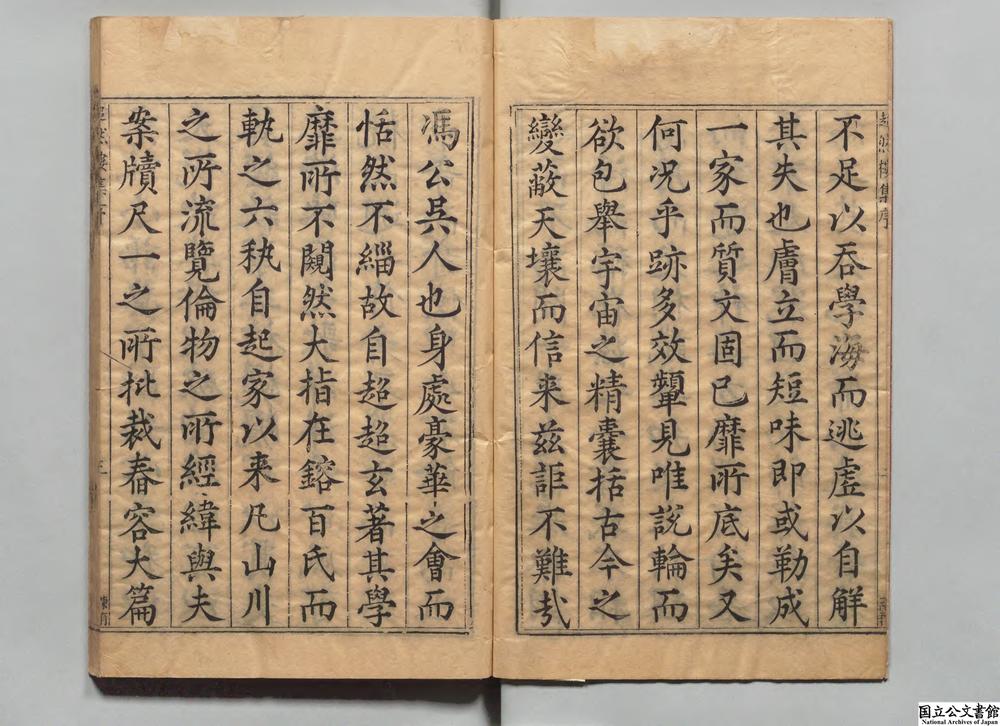 超然樓集序
不足以吞學海而逃虛以自解
其失也膚立而短味即或勒成
一家而質文固已靡所底矣又
何況乎跡多效顰見唯說輪而
欲包舉宇宙之精囊括古今之
變蔽天壤而信来兹詎不難哉
馮公吳人也身處豪華之會而
恬然不緇故自超超玄著其學
靡所不闚然大指在鎔百氏而
執之六秇自起家以来凡山川
之所流覽倫物之所經緯與夫
案牘尺一之所批裁春容大篇
超然樓集序
三
国立公文書館
National Archives of Japan